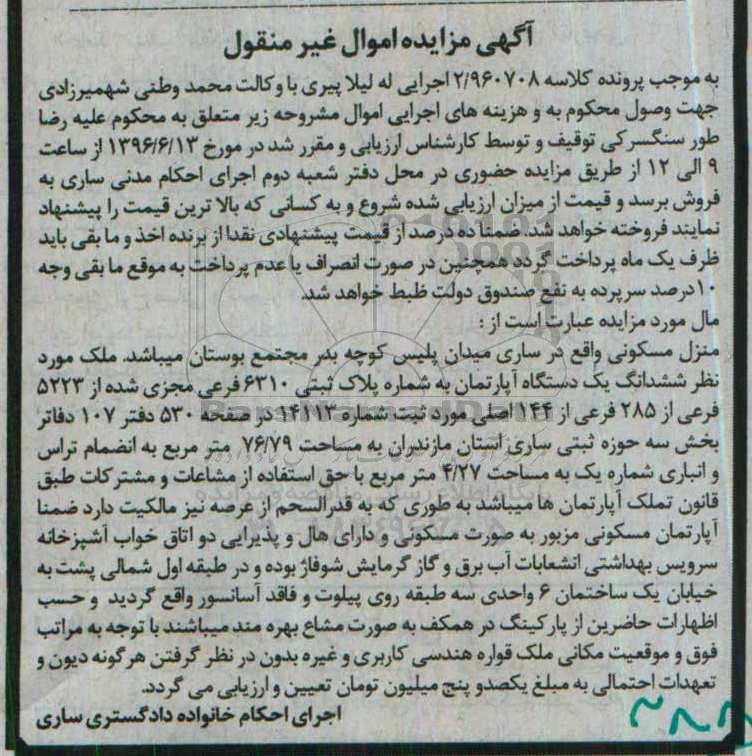 آگهی مزایده اموال غیر منقول
به موجب پرونده کلاسه ۲/۹۶۰۷۰۸ اجرایی له لیلا پیری با وکالت محمد وطنی شهمیرزادی
جهت وصول محکوم به و هزینه های اجرایی اموال مشروحه زیر متعلق به محکوم علیه رضا
طور سنگسرکی توقیف و توسط کارشناس ارزیابی و مقرر شد در مورخ ۱۳۹۶/۶/۱۳ از ساعت
۹ الی ۱۲ از طریق مزایده حضوری در محل دفتر شعبه دوم اجرای احکام مدنی ساری به
فروش برسد و قیمت از میزان ارزیابی شده شروع و به کسانی که بالا ترین قیمت را پیشنهاد
نمایند فروخته خواهد شد. ضمنا ده درصد از قیمت پیشنهادی نقدا از برنده اخذ و ما بقی باید
ظرف یک ماه پرداخت گردد همچنین در صورت انصراف یا عدم پرداخت به موقع ما بقی وجه
۱۰درصد سپرده به نفع صندوق دولت ظبط خواهد شد.
مال مورد مزایده عبارت است از :
منزل مسکونی واقع در ساری میدان پلیس کوچه بدر مجتمع بوستان میباشد. ملک مورد
نظر ششدانگ یک دستگاه آپارتمان به شماره پلاک ثبتی ۶۳۱۰ فرعی مجزی شده از ۵۲۲۳
فرعی از ۲۸۵ فرعی از ۱۴۴ اصلی مورد ثبت شماره ۱۴۱۱۳ در صفحه ۵۳۰ دفتر ۱۰۷ دفاتر
بخش سه حوزه ثبتی ساری استان مازندران به مساحت ۷۶/۷۹ متر مربع به انضمام تراس
و انباری شماره یک به مساحت ۴/۲۷ متر مربع با حق استفاده از مشاعات و مشترکات طبق
قانون تملک آپارتمان ها میباشد به طوری که به قدرالسحم از عرصه نیز مالکیت دارد ضمنا
آپارتمان مسکونی مزبور به صورت مسکونی و دارای هال و پذیرایی دو اتاق خواب آشپزخانه
سرویس بهداشتی انشعابات آب برق و گاز گرمایش شوفاژ بوده و در طبقه اول شمالی پشت به
خیابان یک ساختمان ۶ واحدی سه طبقه روی پیلوت و فاقد آسانسور واقع گردید و حسب
اظهارات حاضرین از پارکینگ در همکف به صورت مشاع بهره مند میباشند با توجه به مراتب
فوق و موقعیت مکانی ملک قواره هندسی کاربری و غیره بدون در نظر گرفتن هر گونه دیون و
تعهدات احتمالی به مبلغ یکصدو پنج میلیون تومان تعیین و ارزیابی می گردد.
اجرای احکام خانواده دادگستری ساری